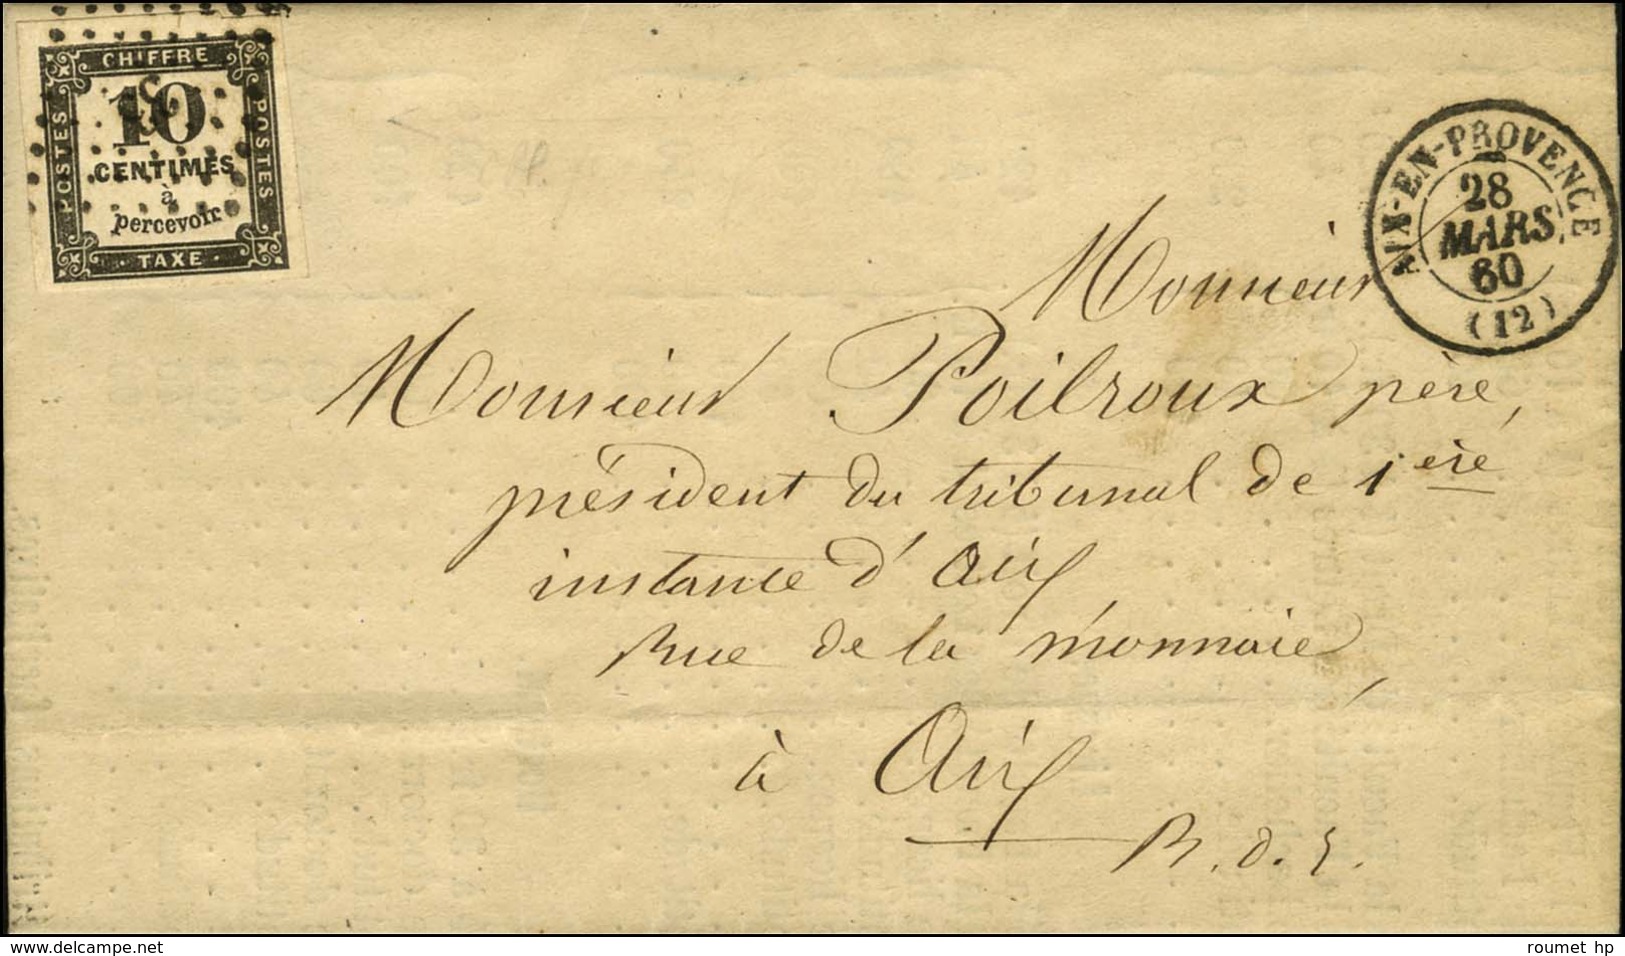 CHIFFRE
POSTES
POSTES
10
CENTIMES
à
percevoir
· TAXE ·
AIX-EN-PROVENCE
28
MARS
60
(12)
Monsieur
Monsieur Poilroux père,
président du tribunal de 1ère
instance d'Aix
Rue de la monnaie
à Aix
R. d. L.
www.delcampe.net
roumet hp